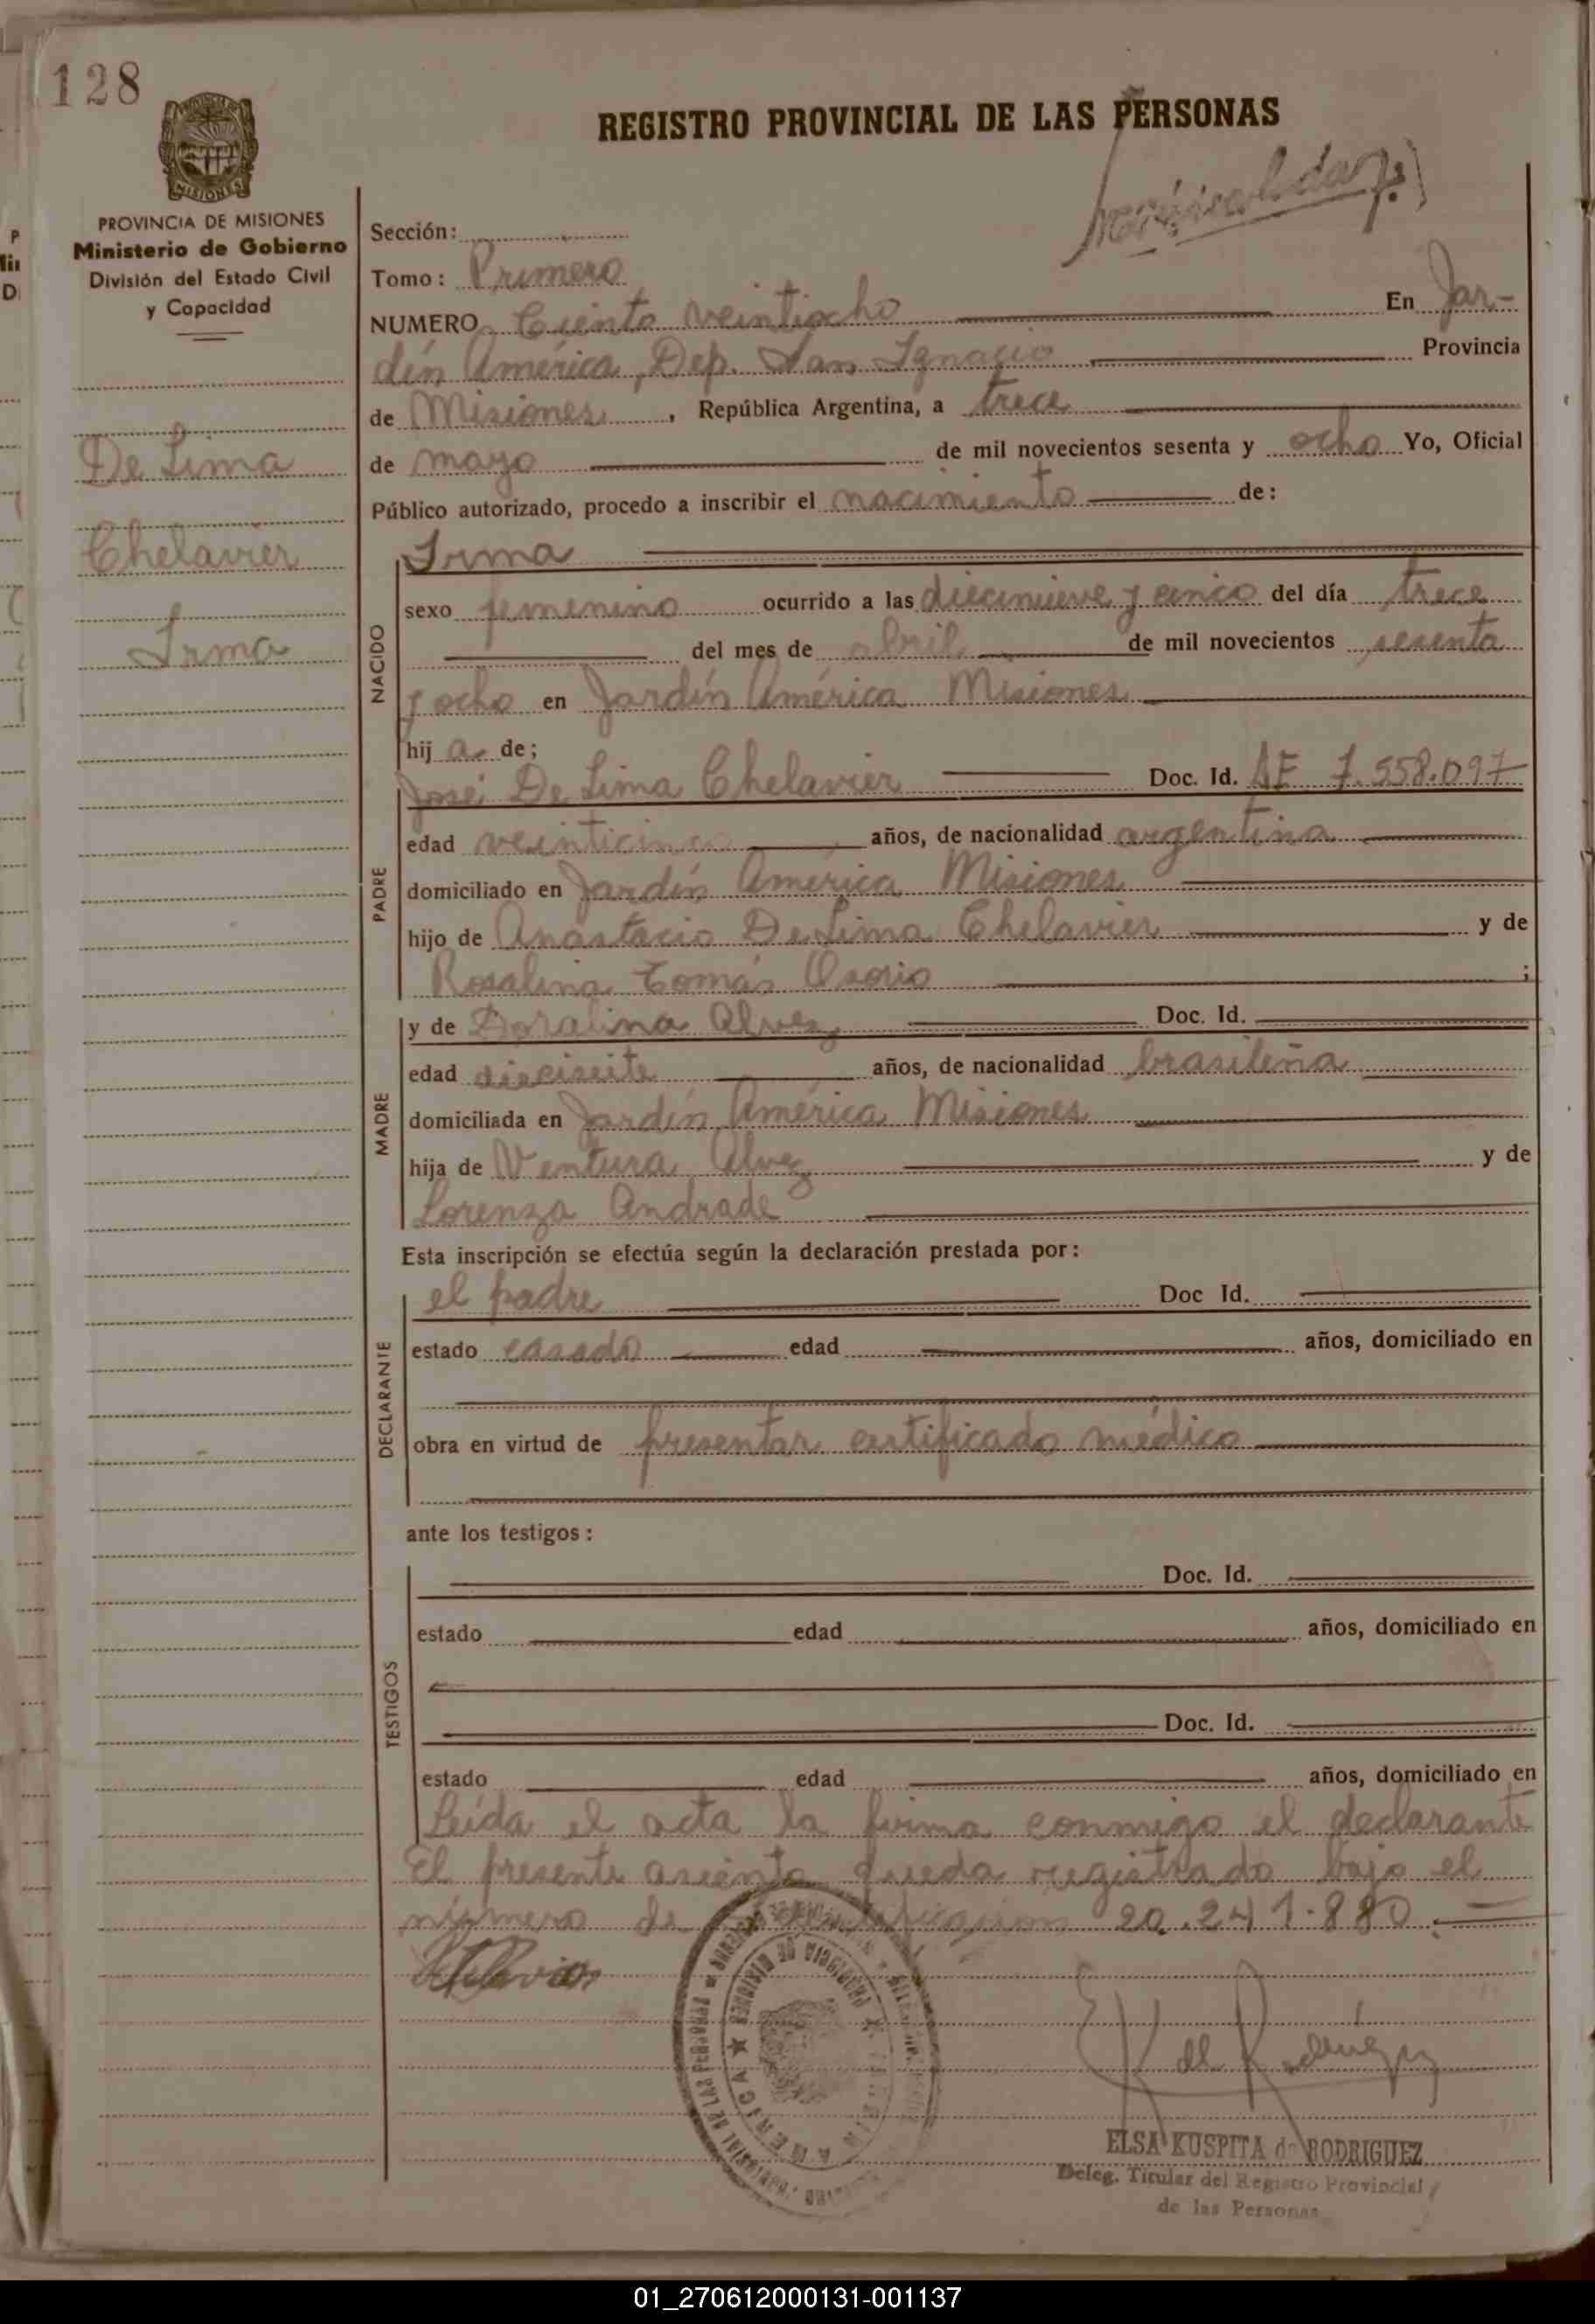 128
REGISTRO PROVINCIAL DE LAS PERSONAS
MISIONES
PROVINCIA DE MISIONES
Ministerio de Gobierno
División del Estado Civil
y Capacidad
De Lima
Chelavier
Irma
Sección:
Tomo: Primero
NUMERO Ciento veintiocho En Jar-
dín América, Dep. San Ignacio Provincia
de Misiones, República Argentina, a trece
de mayo de mil novecientos sesenta y ocho Yo, Oficial
Público autorizado, procedo a inscribir el nacimiento de:
NACIDO
Irma
sexo femenino ocurrido a las diecinueve y cinco del día trece
del mes de abril de mil novecientos sesenta
y ocho en Jardín América Misiones
hija de;
PADRE
José De Lima Chelavier Doc. Id. 7.558.097
edad veinticinco años, de nacionalidad argentina
domiciliado en Jardín América Misiones
hijo de Anastacio De Lima Chelavier y de
Rosalina Tomás Osorio ;
MADRE
y de Doralina Alvez Doc. Id.
edad diecisiete años, de nacionalidad brasileña
domiciliada en Jardín América Misiones
hija de Ventura Alvez y de
Lorenza Andrade
Esta inscripción se efectúa según la declaración prestada por:
DECLARANTE
el padre Doc Id.
estado casado edad años, domiciliado en
obra en virtud de presentar certificado médico
ante los testigos:
TESTIGOS
Doc. Id.
estado edad años, domiciliado en
Doc. Id.
estado edad años, domiciliado en
Leída el acta la firma conmigo el declarante
El presente asiento queda registrado bajo el
número de identificación 20.241.880.
Chelavier
PROVINCIA DE MISIONES ★ AMERICA
E K de Rodríguez
ELSA KUSPITA de RODRIGUEZ
Deleg. Titular del Registro Provincial
de las Personas
01_270612000131-001137